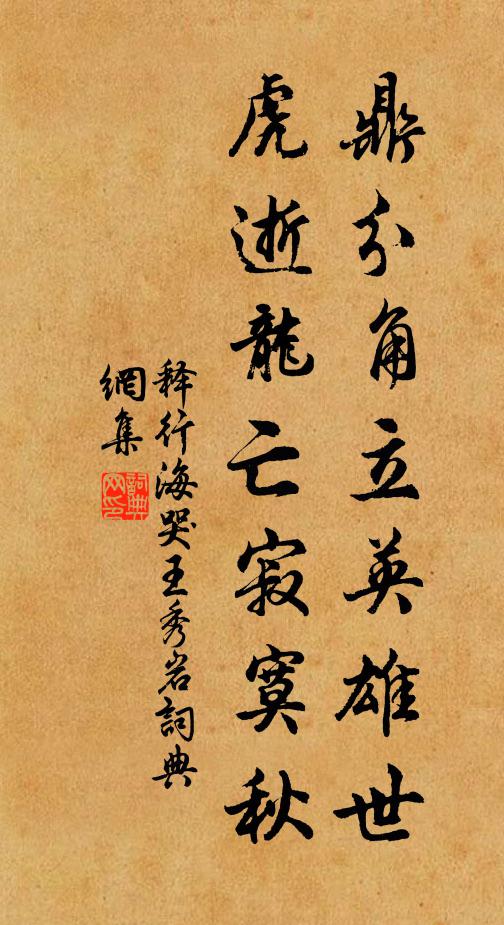 鼎分角立英雄世
虎逝龍亡寂寞秋
释行海哭王秀岩詞典
網集
詞典
网印